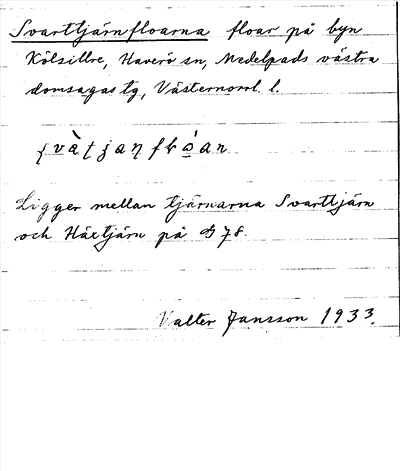 Svarttjärnfloarna floar på byn
Kölsillre, Haverö sn, Medelpads västra
domsagas tg, Västernorrl. l.
Ligger mellan tjärnarna Svarttjärn
och Häxtjärn på
Valter Jansson 1933.